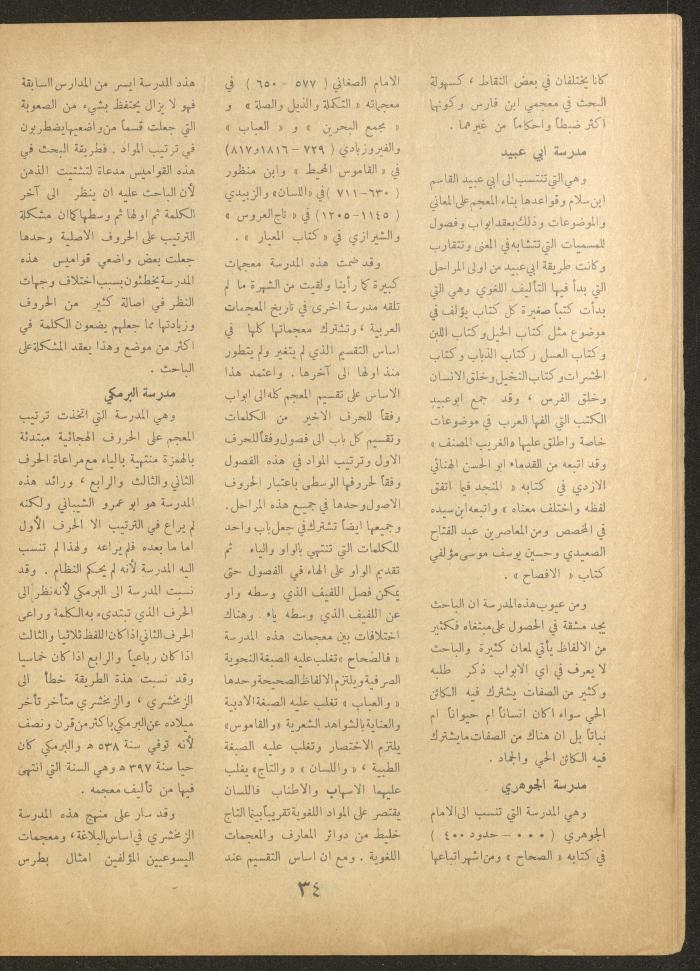 كانا يختلفان في بعض النقاط ، كسهولة
البحث في معجمي ابن فارس وكونهما
اكثر ضبطاً واحكاماً من غيرهما .
مدرسة ابي عبيد
وهي التي تنتسب الى ابي عبيد القاسم
ابن سلام وقواعدها بناء المعجم على المعاني
والموضوعات وذلك بعقد ابواب وفصول
للمسميات التي تتشابه في المعنى وتتقارب
وكانت طريقة ابي عبيد من اولى المراحل
التي بدأ فيها التأليف اللغوي وهي التي
بدأت كتباً صغيرة كل كتاب يؤلف في
موضوع مثل كتاب الخيل وكتاب اللبن
وكتاب العسل وكتاب الذباب وكتاب
الحشرات وكتاب النخيل وخلق الانسان
وخلق الفرس ، وقد جمع ابو عبيد
الكتب التي الفها العرب في موضوعات
خاصة واطلق عليها «الغريب المصنف »
وقد اتبعه من القدماء ابو الحسن الهنائي
الازدي في كتابه « المنجد فيما اتفق
لفظه واختلف معناه » واتبعه ابن سيده
في المخصص ومن المعاصرين عبد الفتاح
الصعيدي وحسين يوسف موسى مؤلفي
كتاب « الافصاح » .
ومن عيوب هذه المدرسة ان الباحث
يجد مشقة في الحصول على مبتغاه فكثير
من الالفاظ يأتي لمعان كثيرة والباحث
لا يعرف في اي الابواب ذكر طلبه
وكثير من الصفات يشترك فيه الكائن
الحي سواء اكان انساناً ام حيواناً ام
نباتاً بل ان هناك من الصفات ما يشترك
فيه الكائن الحي والجماد .
مدرسة الجوهري
وهي المدرسة التي تنسب الى الامام
الجوهري ( ٠٠٠ – حدود ٤٠٠ )
في كتابه « الصحاح » ومن اشهر اتباعها
الامام الصغاني ( ٥٧٧ - ٦٥٠ ) في
معجماته « التكملة والذيل والصلة » و
« مجمع البحرين » و « العباب »
والفيروزبادي ( ٧٢٩ – ٨١٦ او ٨١٧)
في « القاموس المحيط » وابن منظور
( ٦٣٠–٧١١ ) في «اللسان» والزبيدي
( ١١٤٥–١٢٠٥) في « تاج العروس »
والشيرازي في « كتاب المعيار » .
وقد ضمت هذه المدرسة معجمات
كبيرة كما رأينا ولقيت من الشهرة ما لم
تلقه مدرسة اخرى في تاريخ المعجمات
العربية ، وتشترك معجماتها كلها في
اساس التقسيم الذي لم يتغير ولم يتطور
منذ اولها الى آخرها . واعتمد هذا
الاساس على تقسيم المعجم كله الى ابواب
وفقاً للحرف الاخير من الكلمات
وتقسيم كل باب الى فصول وفقاً للحرف
الاول وترتيب المواد في هذه الفصول
وفقاً لحروفها الوسطى باعتبار الحروف
الاصول وحدها في جميع هذه المراحل.
وجميعها ايضاً تشترك في جعل باب واحد
للكلمات التي تنتهي بالواو والياء ثم
تقديم الواو على الهاء في الفصول حتى
يمكن فصل اللفيف الذي وسطه واو
عن اللفيف الذي وسطه ياء . وهناك
اختلافات بين معجمات هذه المدرسة
« فالصحاح » تغلب عليه الصبغة النحوية
الصرفية ويلتزم الالفاظ الصحيحة وحدها
« والعباب » تغلب عليه الصبغة الادبية
والعناية بالشواهد الشعرية «والقاموس»
يلتزم الاختصار وتغلب عليه الصبغة
الطبية ، « واللسان » « والتاج » يغلب
عليهما الاسهاب والاطناب فاللسان
يقتصر على المواد اللغوية تقريباً بينما التاج
خليط من دوائر المعارف والمعجمات
اللغوية . ومع ان اساس التقسيم عند
هذه المدرسة ايسر من المدارس السابقة
فهو لا يزال يحتفظ بشيء من الصعوبة
التي جعلت قسماً من واضعيها يضطربون
في ترتيب المواد . فطريقة البحث في
هذه القواميس مدعاة لتشتيت الذهن
لأن الباحث عليه ان ينظر الى آخر
الكلمة ثم اولها ثم وسطها كما ان مشكلة
الترتيب على الحروف الاصلية وحدها
جعلت بعض واضعي قواميس هذه
المدرسة يخطئون بسبب اختلاف وجهات
النظر في اصالة كثير من الحروف
وزيادتها مما جعلهم يضعون الكلمة في
اكثر من موضع وهذا يعقد المشكلة على
الباحث .
مدرسة البرمكي
وهي المدرسة التي اتخذت ترتيب
المعجم على الحروف الهجائية مبتدئة
بالهمزة منتهية بالياء مع مراعاة الحرف
الثاني والثالث والرابع ، ورائد هذه
المدرسة هو ابو عمرو الشيباني ولكنه
لم يراع في الترتيب الا الحرف الأول
اما ما بعده فلم يراعه ولهذا لم تنسب
اليه المدرسة لأنه لم يحكم النظام . وقد
نسبت المدرسة الى البرمكي لأنه نظر الى
الحرف الذي تبتدىء به الكلمة وراعى
الحرف الثاني اذا كان اللفظ ثلاثيا والثالث
اذا كان رباعياً والرابع اذا كان خماسيا
وقد نسبت هذة الطريقة خطأ الى
الزمخشري ، والزمخشري متأخر تأخر
ميلاده عن البرمكي باكثر من قرن ونصف
لأنه توفي سنة ٥٣٨ ه والبرمكي كان
حيا سنة ٣٩٧ ه وهي السنة التي انتهى
فيها من تأليف معجمه .
وقد سار على منهج هذه المدرسة
الزمخشري في اساس البلاغة، ومعجمات
اليسوعيين المؤلفين امثال بطرس
٣٤